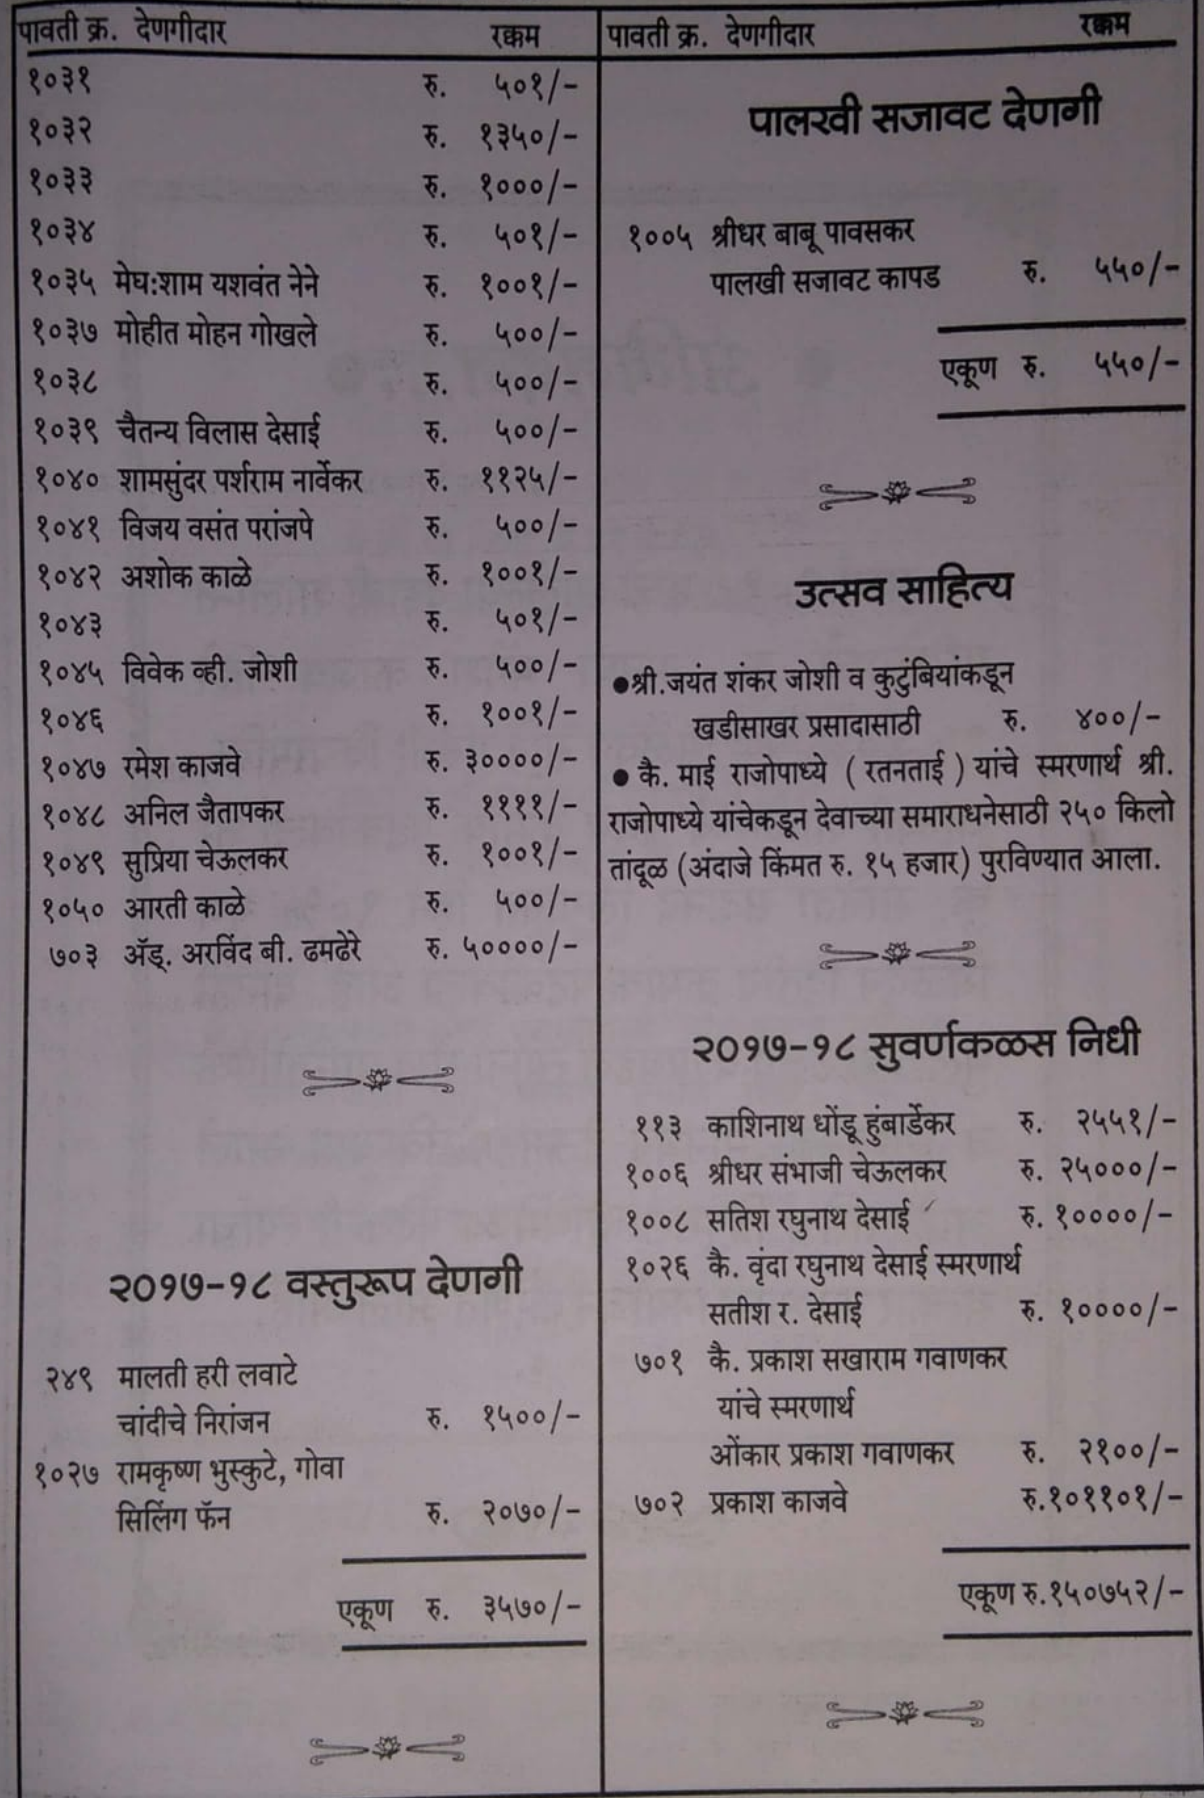 पावती क्र. देणगीदार रक्कम
१०३१ रु. ५०१/-
१०३२ रु. १३५०/-
१०३३ रु. १०००/-
१०३४ रु. ५०१/-
१०३५ मेघ:शाम यशवंत नेने रु. १००१/-
१०३७ मोहीत मोहन गोखले रु. ५००/-
१०३८ रु. ५००/-
१०३९ चैतन्य विलास देसाई रु. ५००/-
१०४० शामसुंदर पर्शराम नार्वेकर रु. ११२५/-
१०४१ विजय वसंत परांजपे रु. ५००/-
१०४२ अशोक काळे रु. १००१/-
१०४३ रु. ५०१/-
१०४५ विवेक व्ही. जोशी रु. ५००/-
१०४६ रु. १००१/-
१०४७ रमेश काजवे रु. ३००००/-
१०४८ अनिल जैतापकर रु. ११११/-
१०४९ सुप्रिया चेऊलकर रु. १००१/-
१०५० आरती काळे रु. ५००/-
७०३ ॲड्. अरविंद बी. ढमढेरे रु. ५००००/-
२०१७-१८ वस्तुरूप देणगी
२४९ मालती हरी लवाटे
चांदीचे निरांजन रु. १५००/-
१०२७ रामकृष्ण भुस्कुटे, गोवा
सिलिंग फॅन रु. २०७०/-
एकूण रु. ३५७०/-
पावती क्र. देणगीदार रक्कम
पालखी सजावट देणगी
१००५ श्रीधर बाबू पावसकर
पालखी सजावट कापड रु. ५५०/-
एकूण रु. ५५०/-
उत्सव साहित्य
●श्री.जयंत शंकर जोशी व कुटुंबियांकडून
खडीसाखर प्रसादासाठी रु. ४००/-
● कै. माई राजोपाध्ये ( रतनताई ) यांचे स्मरणार्थ श्री.
राजोपाध्ये यांचेकडून देवाच्या समाराधनेसाठी २५० किलो
तांदूळ (अंदाजे किंमत रु. १५ हजार) पुरविण्यात आला.
२०१७-१८ सुवर्णकळस निधी
११३ काशिनाथ धोंडू हुंबार्डेकर रु. २५५१/-
१००६ श्रीधर संभाजी चेऊलकर रु. २५०००/-
१००८ सतिश रघुनाथ देसाई रु. १००००/-
१०२६ कै. वृंदा रघुनाथ देसाई स्मरणार्थ
सतीश र. देसाई रु. १००००/-
७०१ कै. प्रकाश सखाराम गवाणकर
यांचे स्मरणार्थ
ओंकार प्रकाश गवाणकर रु. २१००/-
७०२ प्रकाश काजवे रु.१०११०१/-
एकूण रु.१५०७५२/-